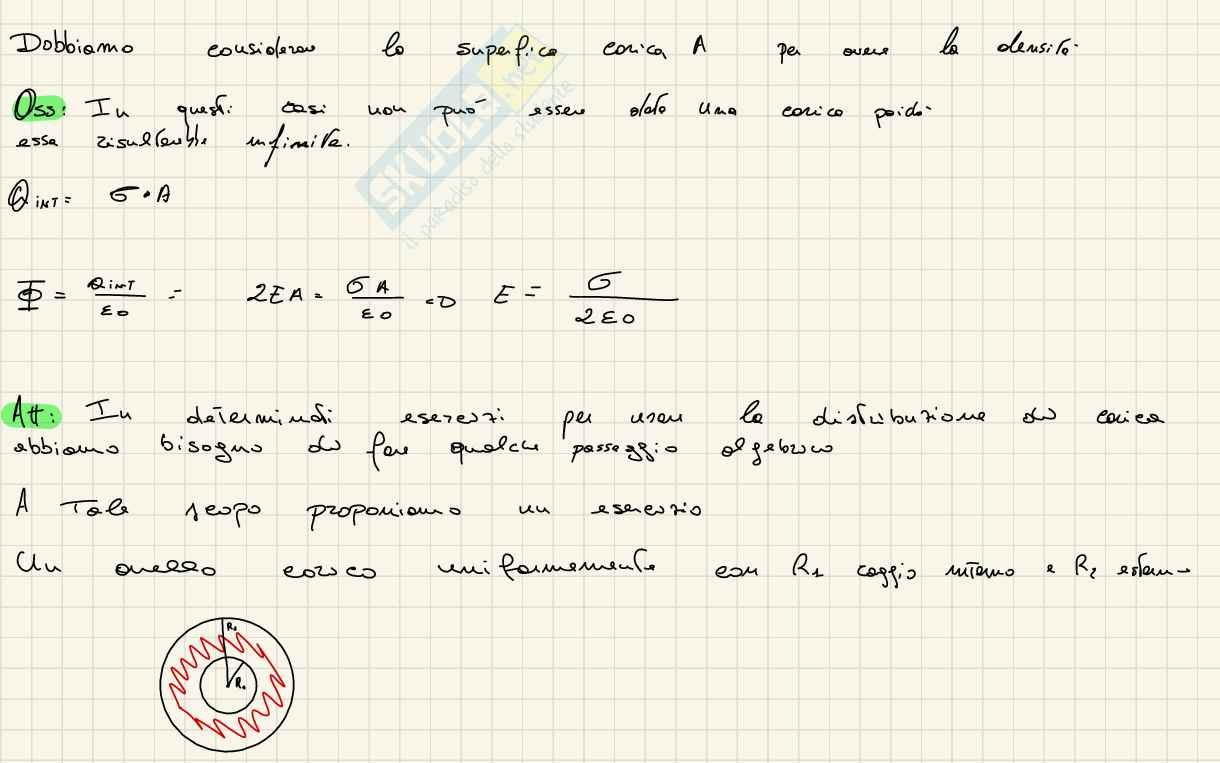 Dobbiamo considerare la superficie carica A per avere la densità.
Oss: In questi casi non può essere data una carica poiché
essa risulterebbe infinita.
Q INT = σ · A
Φ = Q INT / ε0 = 2EA = σ A / ε0 => E = σ / 2 ε0
Att: In determinati esercizi per usare la distribuzione di carica
abbiamo bisogno di fare qualche passaggio algebrico
A Tale scopo proponiamo un esercizio
Un anello carico uniformemente con R1 raggio interno e R2 esterno
SKUOLA.net
il paradiso dello studente